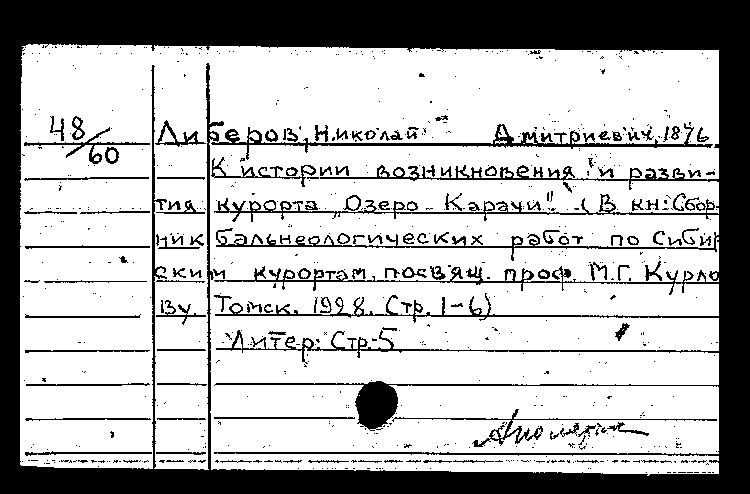 48/60
Либеров, Николай Дмитриевич, 1876
К истории возникновения и разви-
тия курорта „Озеро Карачи". (В кн: Сбор-
ник бальнеологических работ по Сибир
ским курортам, посвящ. проф. М.Г. Курло
ву. Томск. 1928. Стр. 1-6)
Литер: Стр. 5